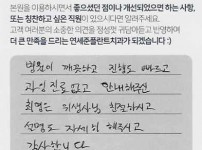 본원을 이용하시면서 좋았던 점이나 개선되었으면 하는 사항,
또는 칭찬하고 싶은 직원이 있으시다면 알려주세요.
고객 여러분의 소중한 의견을 정성껏 귀담아듣고 반영하여
더 큰 만족을 드리는 연세준플란트치과가 되겠습니다 :)
병원이 깨끗하고 진행도 빠르고
과잉진료 없고 안내해주신
위생사님 친절하시고
설명도 자세히 해주시고
감사합니다